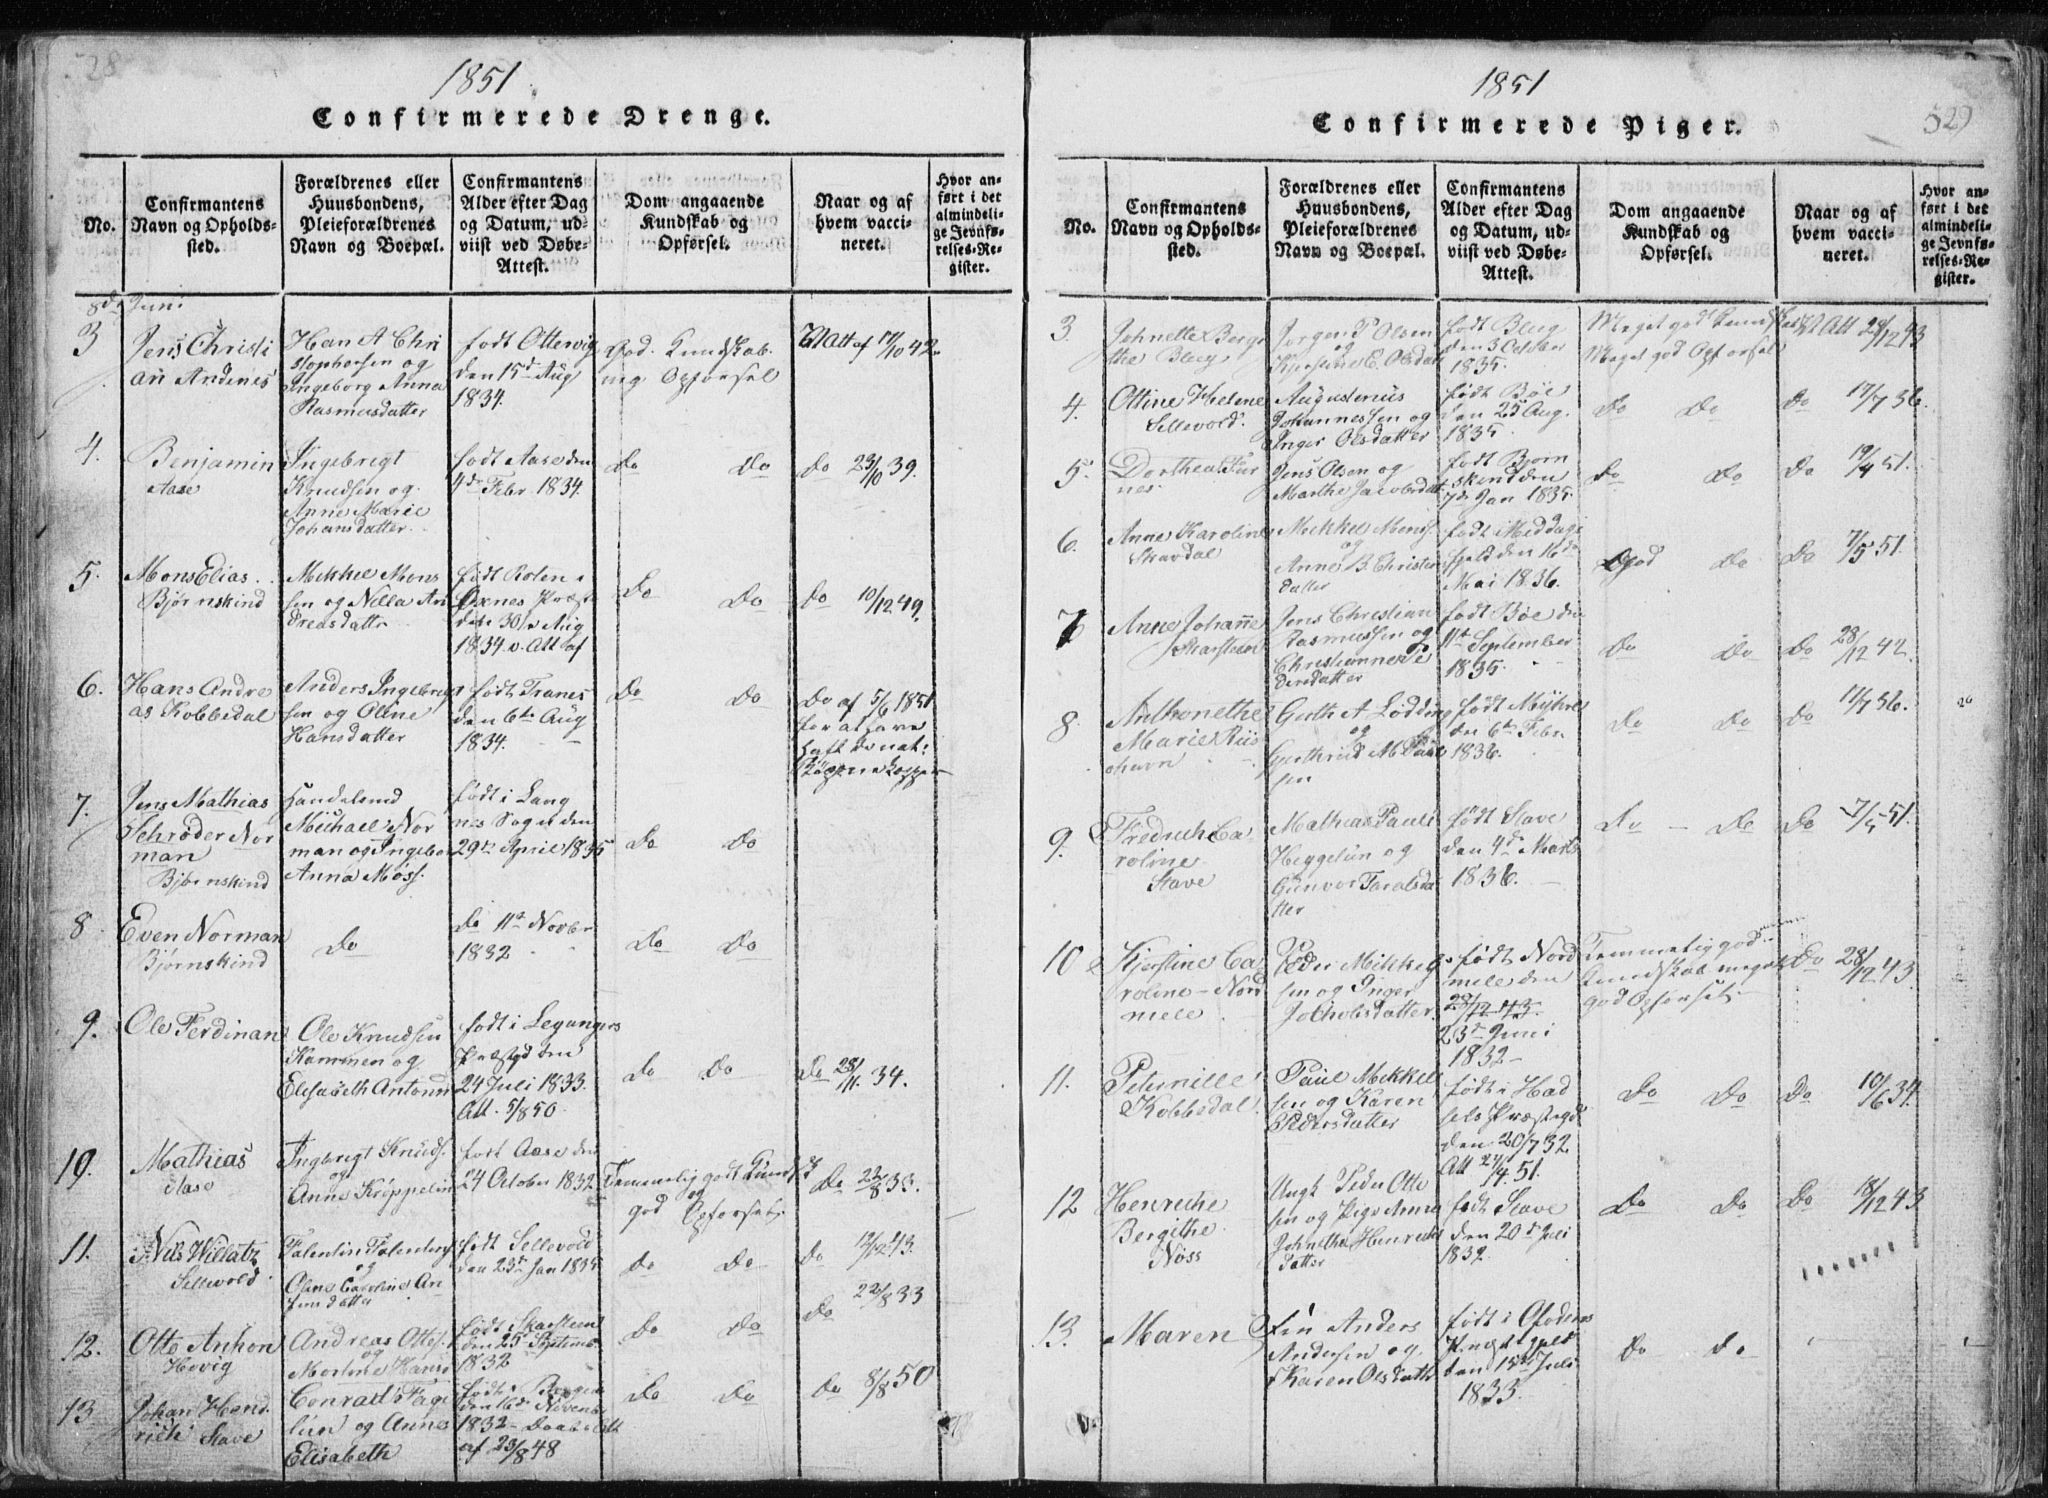 28
1851
Confirmerede Drenge.
No.
Confirmantens
Navn og Opholds-
sted.
Forældrenes eller
Huusbondens,
Pleieforældrenes
Navn og Boepæl.
Confirmantens
Alder efter Dag
og Datum, ud-
viist ved Døbe-
Attest.
Dom angaaende
Kundskab og
Opførsel.
Naar og af
hvem vacci-
neret.
Hvor an-
ført i det
almindeli-
ge Jevnfø-
relses-Re-
gister.
8de Juni
3
Jens Christi
an Andenes
Han A Chri
stophersen og
Ingeborg Anna
Rasmusdatter
født Ottervig
den 15d Aug
1834.
God Kundskab
og Opførsel
Vatt af 17/10 42.
4.
Benjamin
Aase
Ingebregt
Knudsen og
Anne Marie
Johansdatter
født Aase den
4de Febr 1834.
Do Do
Do 23/10 39.
5.
Mons Elias
Bjørnskind
Mikkel Mons
sen og Nilla An
dreasdattr
født Roten i
Øxnes Præst
den 30te Aug
1834 v. Att af
Do Do
Do 10/12 49.
6.
Hans Andre
as Kobbedal
Anders Ingebregt
sen og Oline
Hansdatter
født Tranes
den 6te Aug
1834.
Do Do
Do af 5/6 1851
for at have
haft de nat:
Kopper
7.
Jens Mathias
Schrøder Nor
man
Bjørnskind
Handelsmd
Michael Nor
man og Ingebor
Anna Moss.
født i Lang
nes Sogn den
29de April 1835
Do Do
8
Even Norman
Bjørnskind
Do
Do 11te Novbr
1832
Do Do
9.
Ole Ferdinan
Ole Knudsen
Kammen og
Elisabeth Antonn
født i Leganger
Præstgd den
24 Juli 1833.
Att. 5/8 50.
Do Do
Do 28/11. 34.
10.
Mathias
Aase
Ingbrigt Knuds.
og
Anne Krøppelin
født Aase den
24 October 1832
Temmelig godt Kundsk
og
god Opførsel
Do 22/8 33.
11.
Nils Widatz
Sellevold
Falentin Falentins
og
Oline Caroline An
datter
født Sellevold
den 23de Jan 1835
Do Do
Do 12/12 43.
12.
Otto Anthon
Hovig
Andreas Ottes.
og
Martine Hans
født Skarsteen
den 25de Septembr
1832
Do Do
Do 22/8 33
13
Johan Hend
rich Stave
Conrad Fage
lun og Anne
Elisabeth
født i Bergen
den 16de Novemb
1832 Daabs Att
af 23/8 48
Do Do
Do 8/8 50
1851
529
Confirmerede Piger.
No.
Confirmantens
Navn og Opholds-
sted.
Forældrenes eller
Huusbondens,
Pleieforældrenes
Navn og Boepæl.
Confirmantens
Alder efter Dag
og Datum, ud-
viist ved Døbe-
Attest.
Dom angaaende
Kundskab og
Opførsel.
Naar og af
hvem vacci-
neret.
Hvor an-
ført i det
almindeli-
ge Jevnfø-
relses-Re-
gister.
3.
Johnette Bergi
the Bleg
Jørgen P Olsen
og
Kjerstine E. Olsdatt
født Bleg
den 3 October
1835.
Meget god Kundskab
Meget god Opførsel
V Att 28/12 43
4.
Ottine Helene
Sellevold.
Augustinus
Johannessen og
Inger Olsdatter
født Bøe
den 25 Aug.
1835.
Do Do
Do 17/7 36.
5.
Dorthea Fur
nes.
Jens Olsen og
Marthe Jacobsdatt
født Bjørn
skind den
7de Jan 1835.
Do Do
Do 19/4 51.
6.
Anne Karoline
Skavdal
Mikkel Monss.
og
Anne B. Christen
datter
født Middags
fjeld den 16de
Mai 1836.
God Do
Do 7/5 51.
7
Anne Johanne
Skarsteen
Jens Christian
Rasmussen og
Christianne Pe
dersdatter
født Bøe den
11te September
1835.
Do Do
Do 28/12 42.
8
Anthonethe
Marie Riis
ohavn
Gerth A Lødding
og
Gerthrud M Paul
sen
født Myhre
den 6te Febr.
1836.
Do Do
Do 17/7 36.
9.
Fredrich Ca
roline
Stave
Mathias Pauls
Heggelun og
Gunvor Taralsda
tter
født Stave
den 4de Marts
1836.
Do Do
Do 7/5 51.
10
Kjerstine Ca
roline Nord
mele
Peder Mikkels
sen og Inger
Jakobsdatter.
født Nord
mele den
28/12 43.
23de Juni
1832
Temmelig god
Kundskab meget
god Opførsel
Do 28/12 43.
11.
Peternille
Kobbedal.
Paul Mikkel
sen og Karen
Pedersdatter
født i Had
sels Præstegd
den 20/7 32.
Att 24/4. 51.
Do Do
Do 10/6 34.
12
Henriche
Bergithe
Nøss
Ungk Peder Otte
sen og Pige Anne
Johnetha Henrichs
datter
født Stave
den 20de Juli
1832.
Do Do
Do 18/12 43
13.
Maren
Fin Anders
Andersen og
Karen Olsdatter
født i Ofodens
Præstegjeld
den 15de Juli
1833.
Do Do